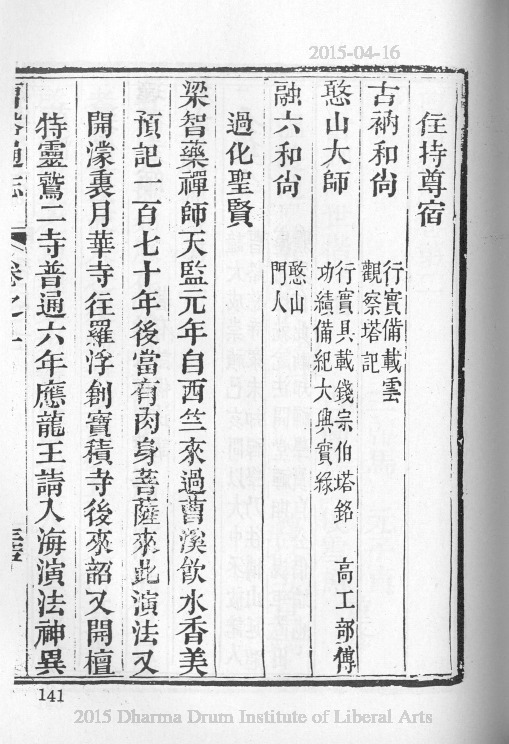 2015-04-16
住持尊宿
古衲和尚 行實備載雲觀察塔記
憨山大師 行實具載錢宗伯塔銘 高工部傳功績備紀大輿實錄
融六和尚 憨山門人
過化聖賢
梁智藥禪師天監元年自西竺來過曹溪飲水香美
預記一百七十年後當有肉身菩薩來此演法又
開濛裏月華寺往羅浮創寶積寺後來韶又開檀
特靈鷲二寺普通六年應龍王請入海演法神異
通志 卷之一
141
2015 Dharma Drum Institute of Liberal Arts